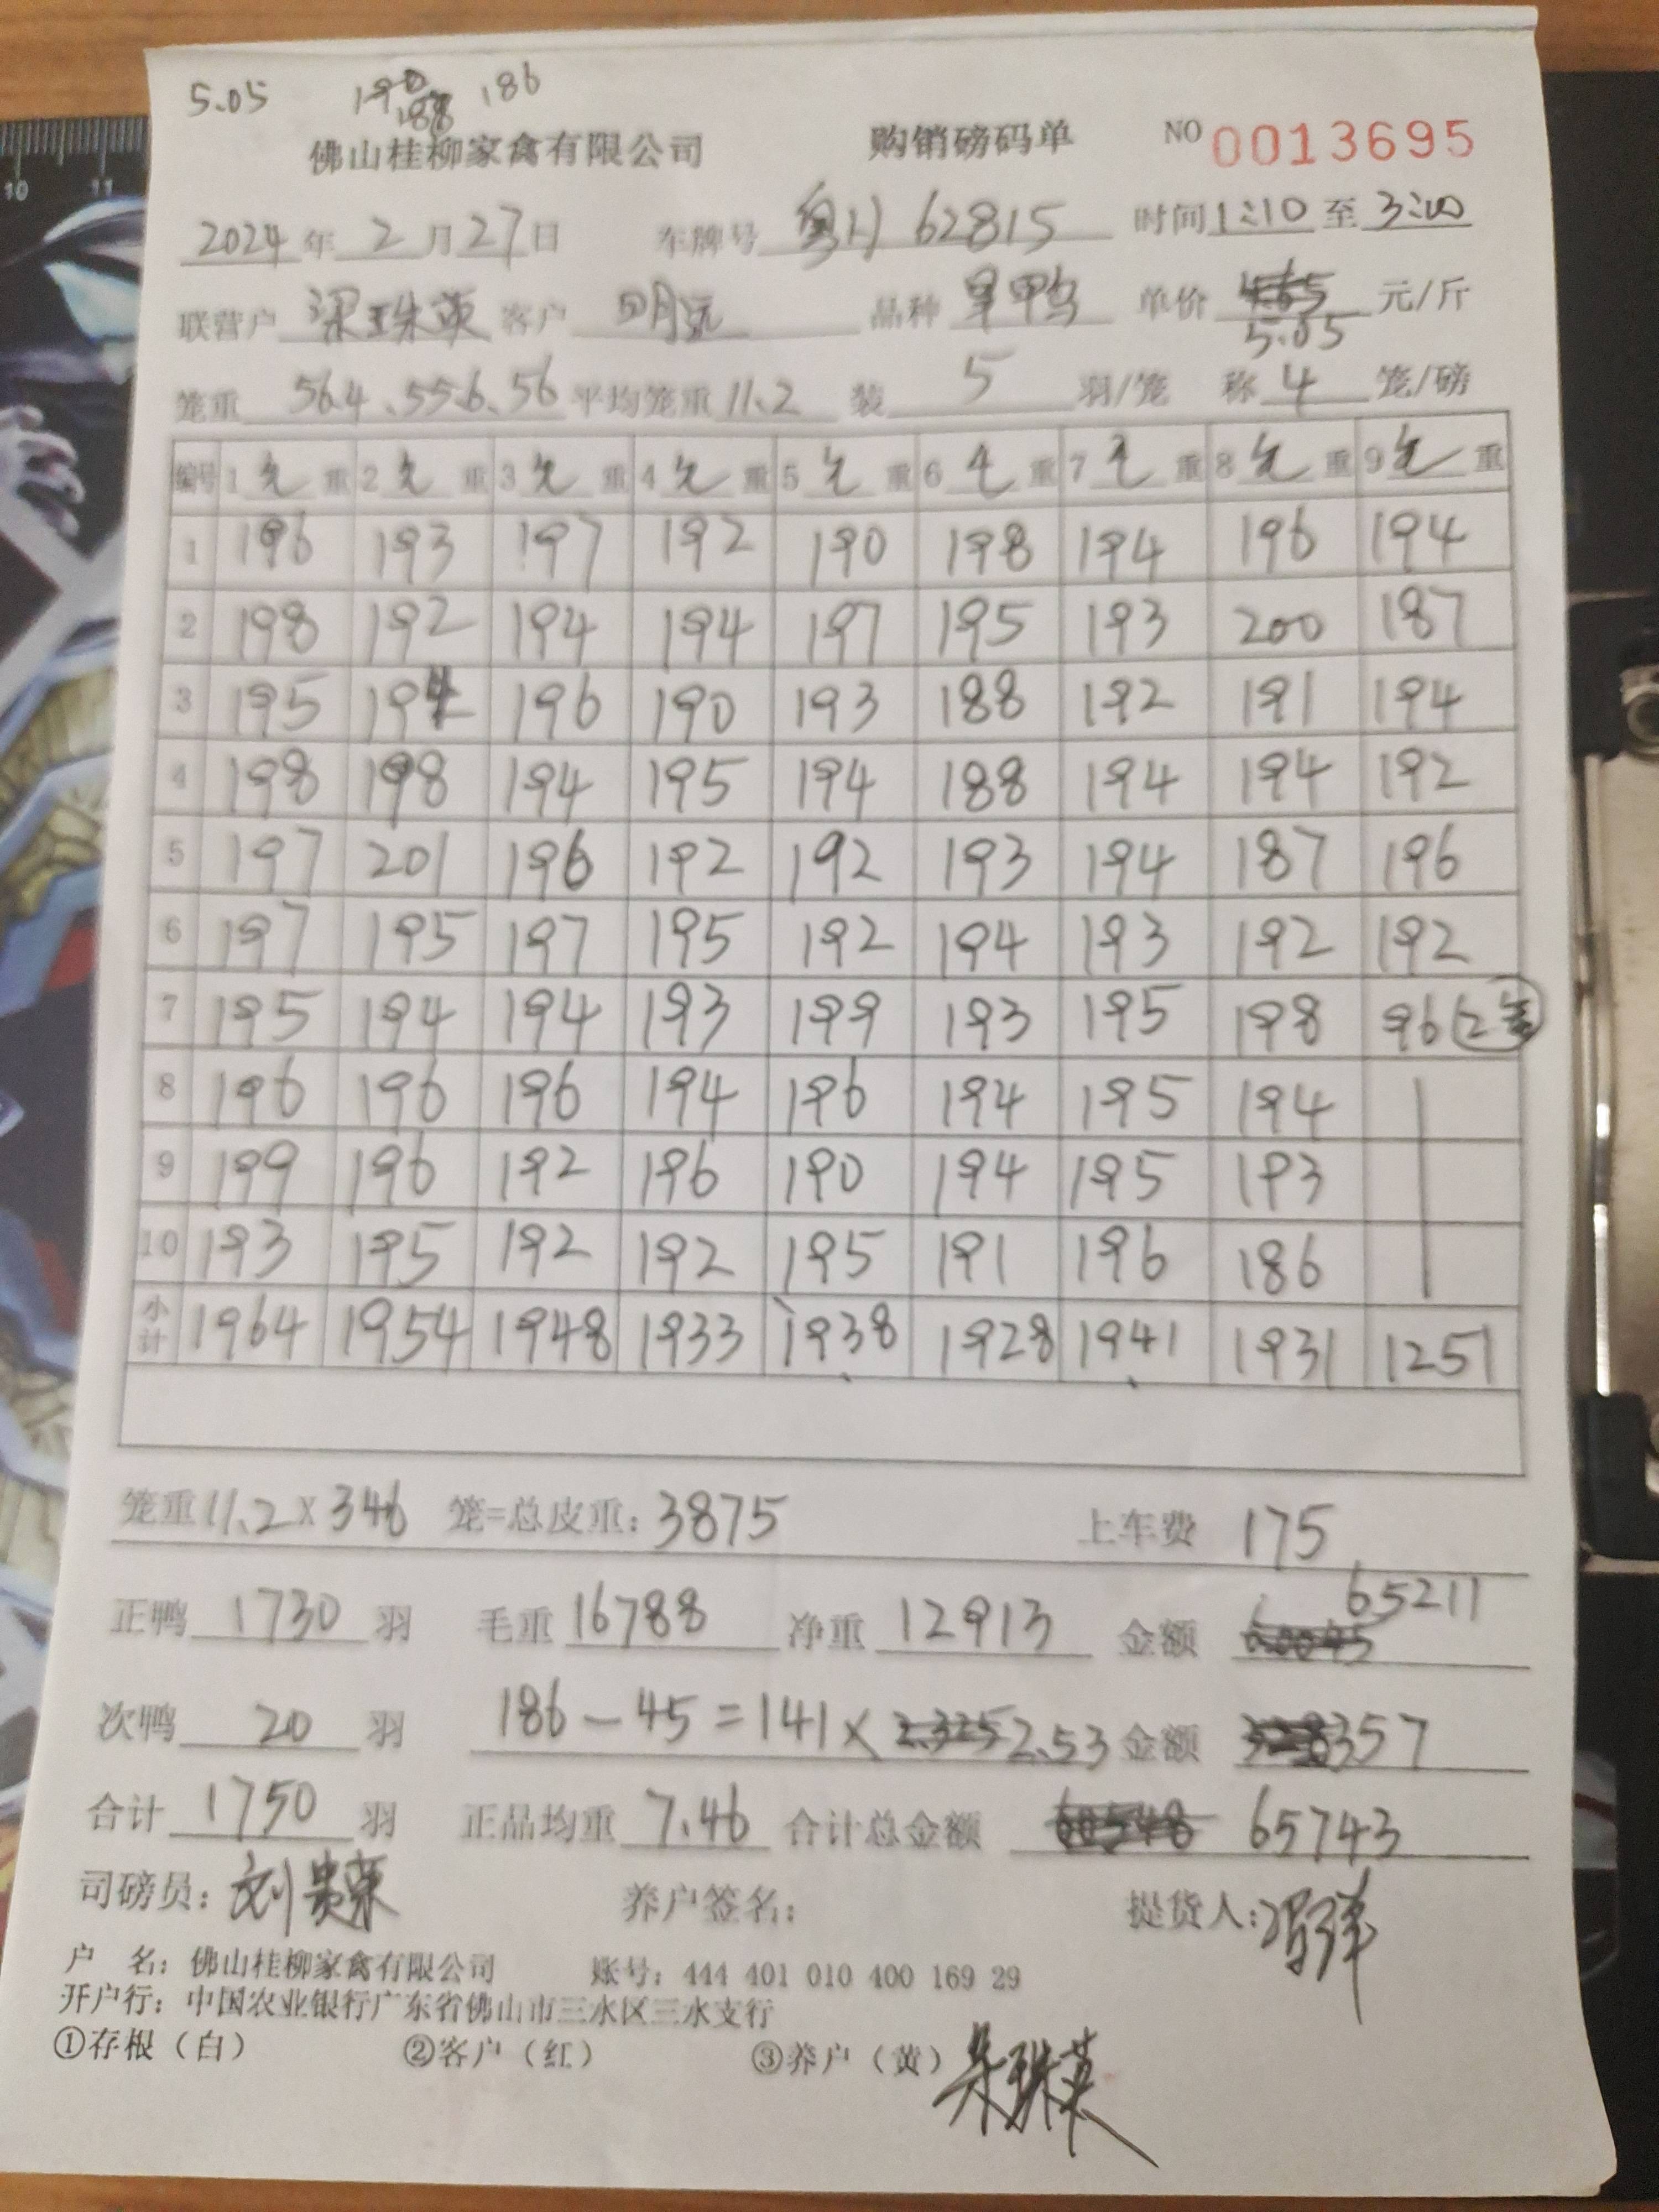 5.05 190 188 186
佛山桂柳家禽有限公司 购销磅码单 NO 0013695
2024年2月27日 车牌号 粤H 62815 时间 1:10 至 3:00
联营户 梁珠英 客户 明远 品种 旱鸭 单价 4.65 5.05 元/斤
笼重 56.4、55.6、56 平均笼重 11.2 装 5 羽/笼 称 4 笼/磅
编号 1 毛 重 2 毛 重 3 毛 重 4 毛 重 5 毛 重 6 毛 重 7 毛 重 8 毛 重 9 毛 重
1 196 193 197 192 190 198 194 196 194
2 198 192 194 194 197 195 193 200 187
3 195 194 196 190 193 188 192 191 194
4 198 198 194 195 194 188 194 194 192
5 197 201 196 192 192 193 194 187 196
6 197 195 197 195 192 194 193 192 192
7 195 194 194 193 199 193 195 198 96 2笼
8 196 196 196 194 196 194 195 194
9 199 196 192 196 190 194 195 193
10 193 195 192 192 195 191 196 186
小计 1964 1954 1948 1933 1938 1928 1941 1931 1251
笼重 11.2 X 346 笼=总皮重: 3875 上车费 175
正鸭 1730 羽 毛重 16788 净重 12913 金额 65211
次鸭 20 羽 186-45=141× 2.325 2.53 金额 357
合计 1750 羽 正品均重 7.46 合计总金额 60548 65743
司磅员: 刘贵荣 养户签名: 提货人:
户 名: 佛山桂柳家禽有限公司 账号: 444 401 010 400 169 29
开户行: 中国农业银行广东省佛山市三水区三水支行
①存根（白） ②客户（红） ③养户（黄） 梁珠英